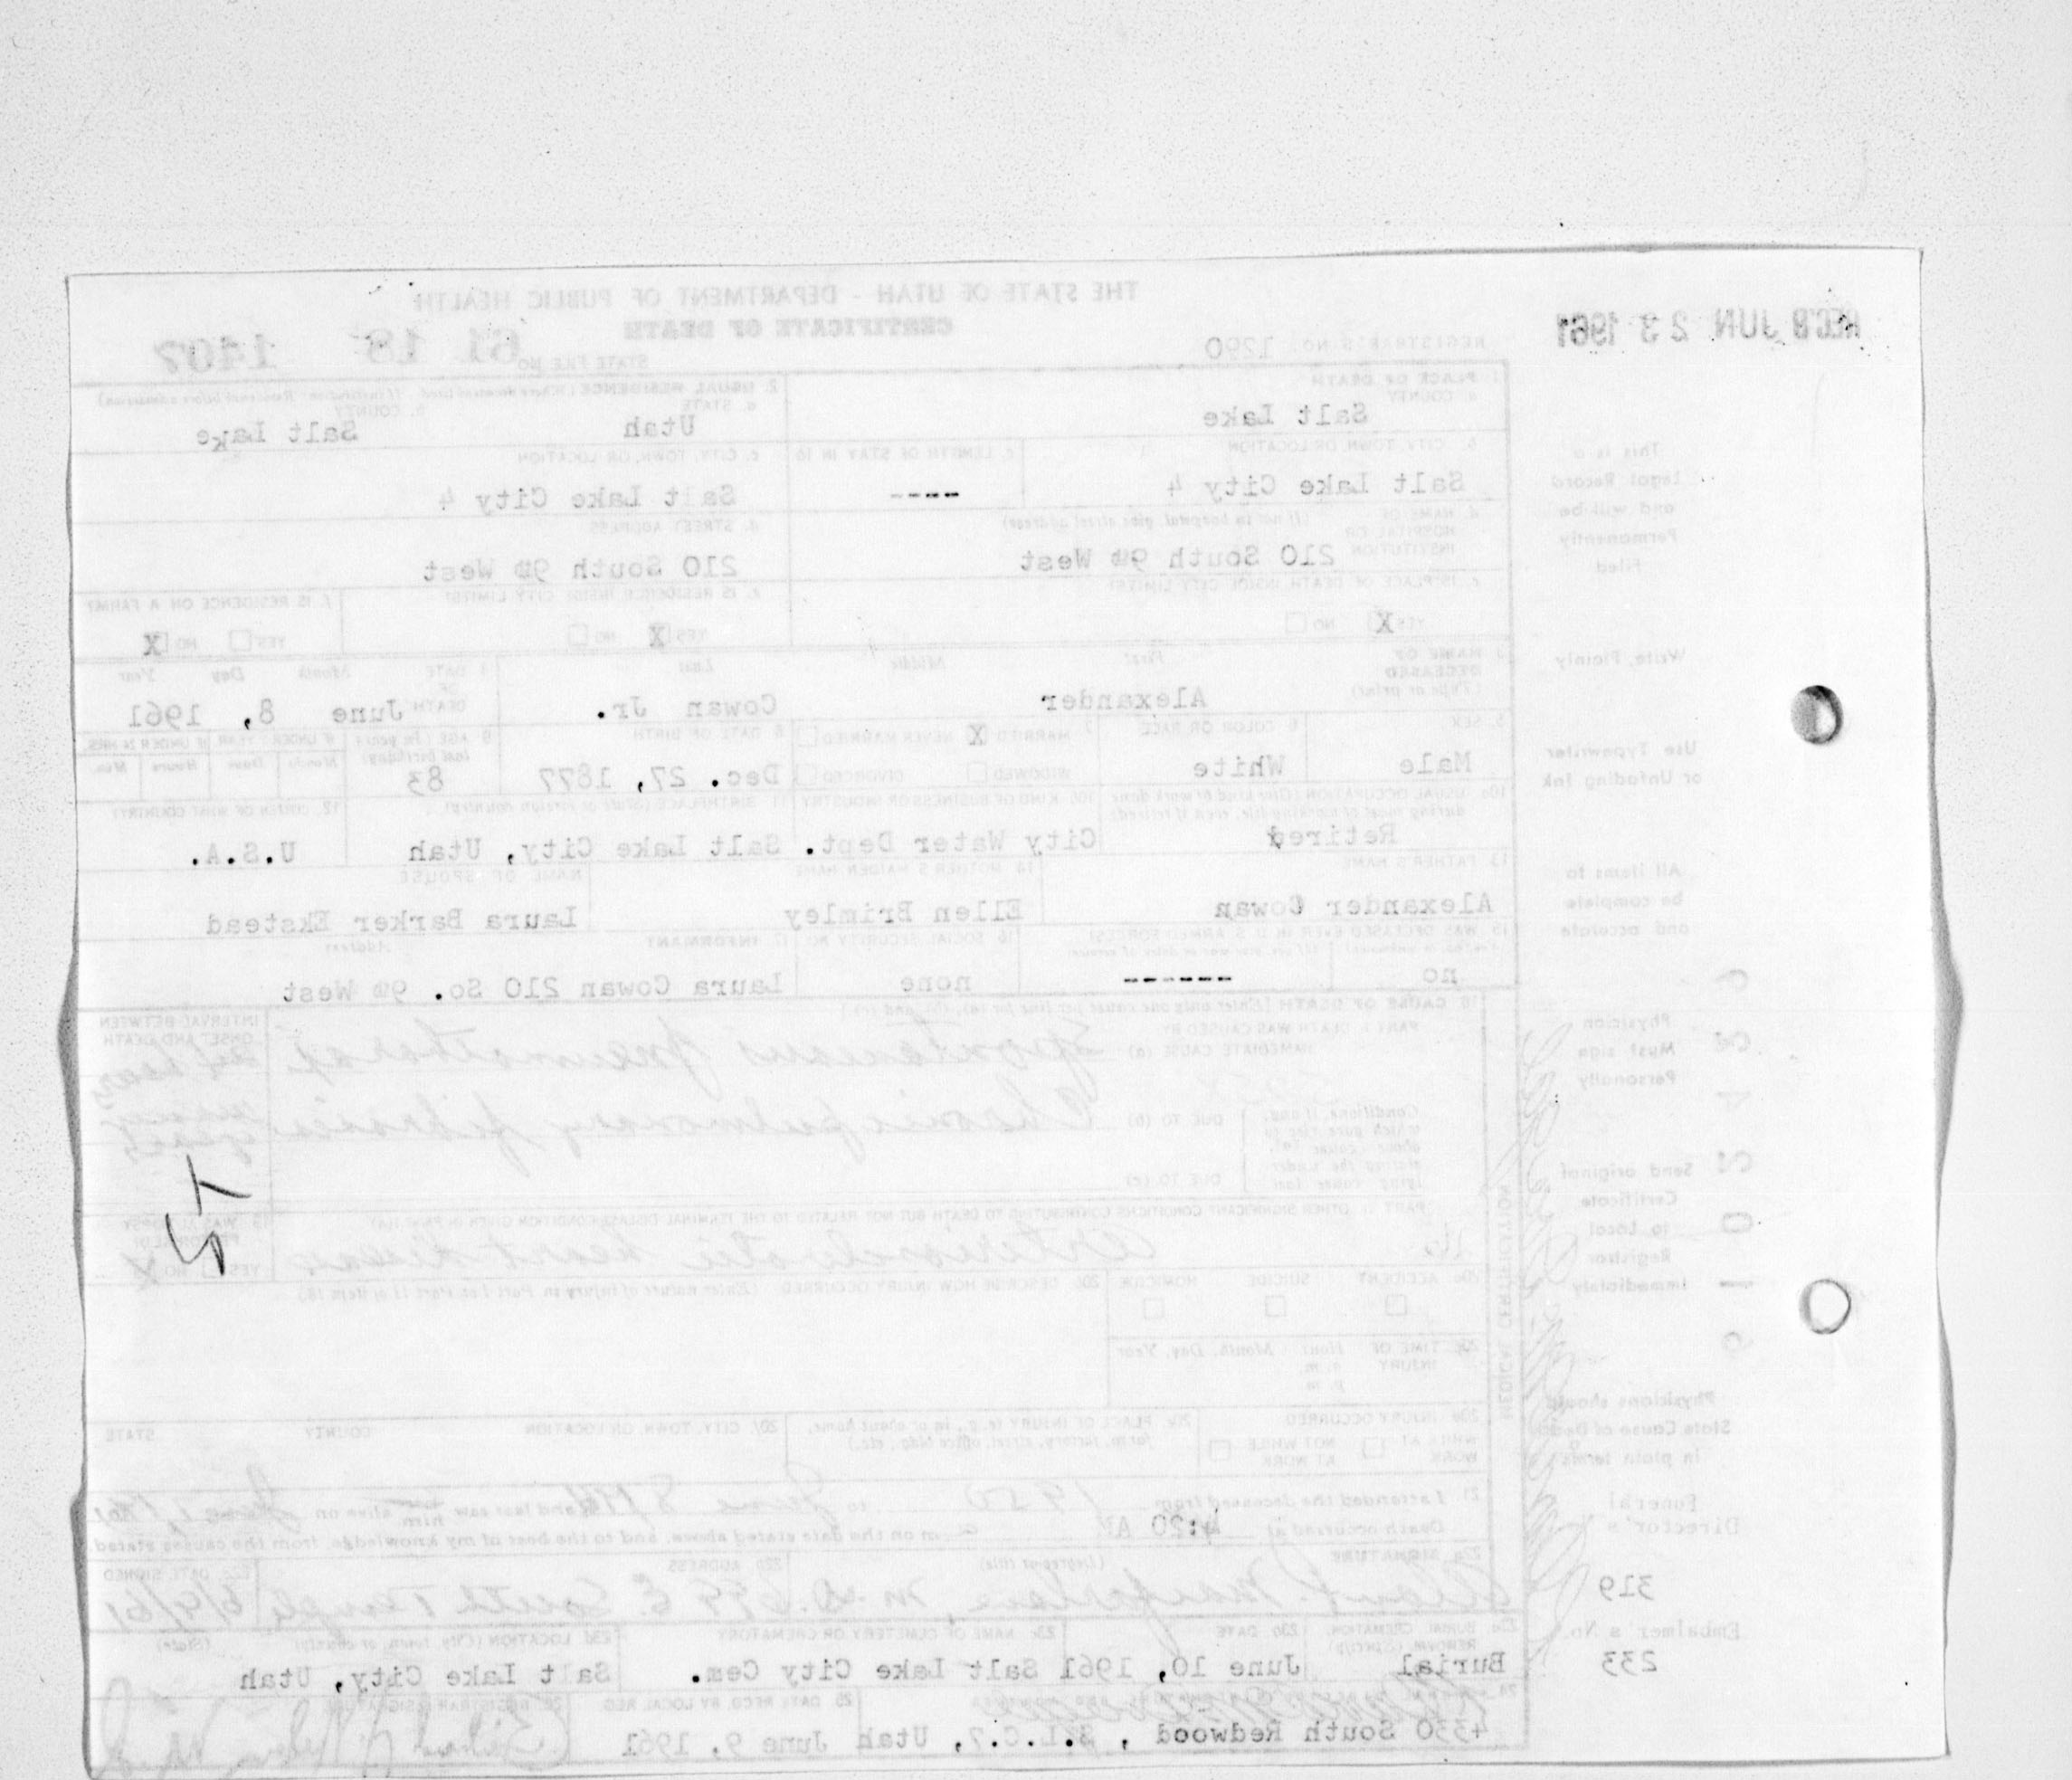 THE STATE OF UTAH - DEPARTMENT OF PUBLIC HEALTH
CERTIFICATE OF DEATH
REC'D JUN 23 1961
REGISTRAR'S NO. 1290
STATE FILE NO. 61 18 1407
1. PLACE OF DEATH
a. COUNTY
Salt Lake
2. USUAL RESIDENCE (Where deceased lived. If institution: Residence before admission)
a. STATE
Utah
b. COUNTY
Salt Lake
b. CITY, TOWN, OR LOCATION
Salt Lake City 4
c. LENGTH OF STAY IN 1b
----
c. CITY, TOWN, OR LOCATION
Salt Lake City 4
d. NAME OF HOSPITAL OR INSTITUTION (If not in hospital, give street address)
210 South 9th West
d. STREET ADDRESS
210 South 9th West
e. IS PLACE OF DEATH INSIDE CITY LIMITS?
YES X NO
e. IS RESIDENCE INSIDE CITY LIMITS?
YES X NO
f. IS RESIDENCE ON A FARM?
YES NO X
3. NAME OF DECEASED (Type or print)
First Middle Last
Alexander Cowan Jr.
4. DATE OF DEATH Month Day Year
June 8, 1961
5. SEX
Male
6. COLOR OR RACE
White
7. MARRIED X NEVER MARRIED
WIDOWED DIVORCED
8. DATE OF BIRTH
Dec. 27, 1877
9. AGE (In years last birthday)
83
IF UNDER 1 YEAR IF UNDER 24 HRS.
Months Days Hours Min.
10a. USUAL OCCUPATION (Give kind of work done during most of working life, even if retired)
Retired
10b. KIND OF BUSINESS OR INDUSTRY
City Water Dept.
11. BIRTHPLACE (State or foreign country)
Salt Lake City, Utah
12. CITIZEN OF WHAT COUNTRY?
U.S.A.
13. FATHER'S NAME
Alexander Cowan
14. MOTHER'S MAIDEN NAME
Ellen Brimley
NAME OF SPOUSE
Laura Barker Ekstead
15. WAS DECEASED EVER IN U. S. ARMED FORCES?
(Yes, no, or unknown) (If yes, give war or dates of service)
no -------
16. SOCIAL SECURITY NO.
none
17. INFORMANT Address
Laura Cowan 210 So. 9th West
18. CAUSE OF DEATH [Enter only one cause per line for (a), (b), and (c).]
PART I. DEATH WAS CAUSED BY:
IMMEDIATE CAUSE (a) Spontaneous pneumothorax
INTERVAL BETWEEN ONSET AND DEATH
Conditions, if any, which gave rise to above cause (a), stating the under-lying cause last.
DUE TO (b) Chronic pulmonary fibrosis
many years
DUE TO (c)
PART II. OTHER SIGNIFICANT CONDITIONS CONTRIBUTING TO DEATH BUT NOT RELATED TO THE TERMINAL DISEASE CONDITION GIVEN IN PART I(a)
Arteriosclerotic heart disease
19. WAS AUTOPSY PERFORMED?
YES NO X
20a. ACCIDENT SUICIDE HOMICIDE
20b. DESCRIBE HOW INJURY OCCURRED. (Enter nature of injury in Part I or Part II of item 18)
20c. TIME OF INJURY Hour Month, Day, Year
a. m.
p. m.
20d. INJURY OCCURRED
WHILE AT WORK NOT WHILE AT WORK
20e. PLACE OF INJURY (e.g., in or about home, farm, factory, street, office bldg., etc.)
20f. CITY, TOWN, OR LOCATION COUNTY STATE
21. I attended the deceased from 1950 to June 8 1961 and last saw him alive on
Death occurred at 4:20 AM m on the date stated above, and to the best of my knowledge, from the causes stated.
22a. SIGNATURE (Degree or title)
M.D.
22b. ADDRESS
699 E. South Temple
22c. DATE SIGNED
6/9/61
23a. BURIAL, CREMATION, REMOVAL (Specify)
Burial
23b. DATE
June 10, 1961
23c. NAME OF CEMETERY OR CREMATORY
Salt Lake City Cem.
23d. LOCATION (City, town, or county) (State)
Salt Lake City, Utah
4330 South Redwood , S.L.C.7, Utah
25. DATE RECD. BY LOCAL REG.
June 9, 1961
26. REGISTRAR'S SIGNATURE
MEDICAL CERTIFICATION
This is a Legal Record and will be Permanently Filed
Write Plainly
Use Typewriter or Unfading Ink
All items to be complete and accurate
Physician Must sign Personally
Send original Certificate to Local Registrar Immediately
Physicians should State Cause of Death in plain terms
Funeral Director's
319
Embalmer's No.
233